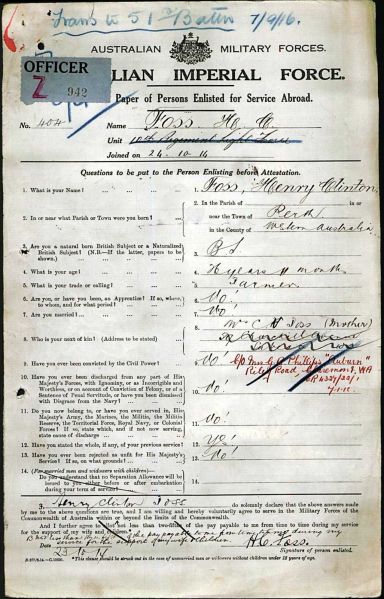 Trans to 51st Battn 7/9/16.
AUSTRALIAN MILITARY FORCES.
OFFICER
Z 942
LIAN IMPERIAL FORCE.
Paper of Persons Enlisted for Service Abroad.
No. 404 Name FOSS H. C.
Unit 10th Regiment Light Horse
Joined on 24.10.14
Questions to be put to the Person Enlisting before Attestation.
1. What is your Name? 1. Foss, Henry Clinton
2. In or near what Parish or Town were you born? 2. In the Parish of
near the Town of Perth
in the County of Western Australia
3. Are you a natural born British Subject or a Naturalized
British Subject? (N.B.—If the latter, papers to be
shown.) 3. B S
4. What is your age? 4. 26 years 11 months
5. What is your trade or calling? 5. Farmer
6. Are you, or have you been, an Apprentice? If so, where,
to whom, and for what period? 6. No!
7. Are you married? 7. No!
8. Who is your next of kin? (Address to be stated) 8. Mrs C. V. Foss (Mother)
C/o Mrs G. C. Phillips "Auburn"
Road, Claremont, WA
9. Have you ever been convicted by the Civil Power? 9. No!
10. Have you ever been discharged from any part of His
Majesty's Forces, with Ignominy, or as Incorrigible and
Worthless, or on account of Conviction of Felony, or of a
Sentence of Penal Servitude, or have you been dismissed
with Disgrace from the Navy? 10. No!
11. Do you now belong to, or have you ever served in, His
Majesty's Army, the Marines, the Militia, the Militia
Reserve, the Territorial Force, Royal Navy, or Colonial
Forces? If so, state which, and if not now serving,
state cause of discharge 11. No!
12. Have you stated the whole, if any, of your previous service? 12. Yes!
13. Have you ever been rejected as unfit for His Majesty's
Service? If so, on what grounds? 13. No!
14. (For married men and widowers with children)
Do you understand that no Separation Allowance will be
issued to you either before or after embarkation
during your term of service? 14.
3. Henry Clinton Foss do solemnly declare that the above answers made
by me to the above questions are true, and I am willing and hereby voluntarily agree to serve in the Military Forces of the
Commonwealth of Australia within or beyond the limits of the Commonwealth.
And I further agree to allot not less than two-fifths of the pay payable to me from time to time during my service
for the support of my wife and children.
23.10.14 H C Foss.
Signature of person enlisted.
*This clause should be struck out in the case of unmarried men or widowers without children under 18 years of age.